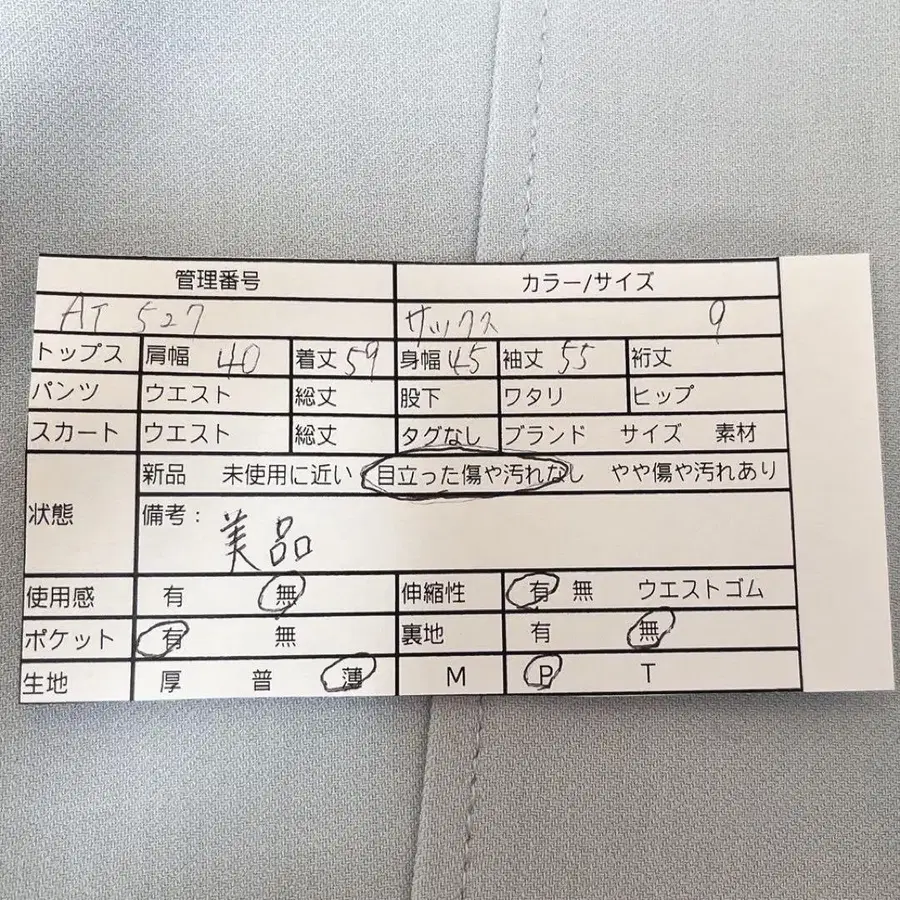 管理番号 カラー/サイズ
AT 527 サックス 9
トップス 肩幅 40 着丈 59 身幅 45 袖丈 55 裄丈
パンツ ウエスト 総丈 股下 ワタリ ヒップ
スカート ウエスト 総丈 タグなし ブランド サイズ 素材
新品 未使用に近い 目立った傷や汚れなし やや傷や汚れあり
状態 備考: 美品
使用感 有 無 伸縮性 有 無 ウエストゴム
ポケット 有 無 裏地 有 無
生地 厚 普 薄 M P T